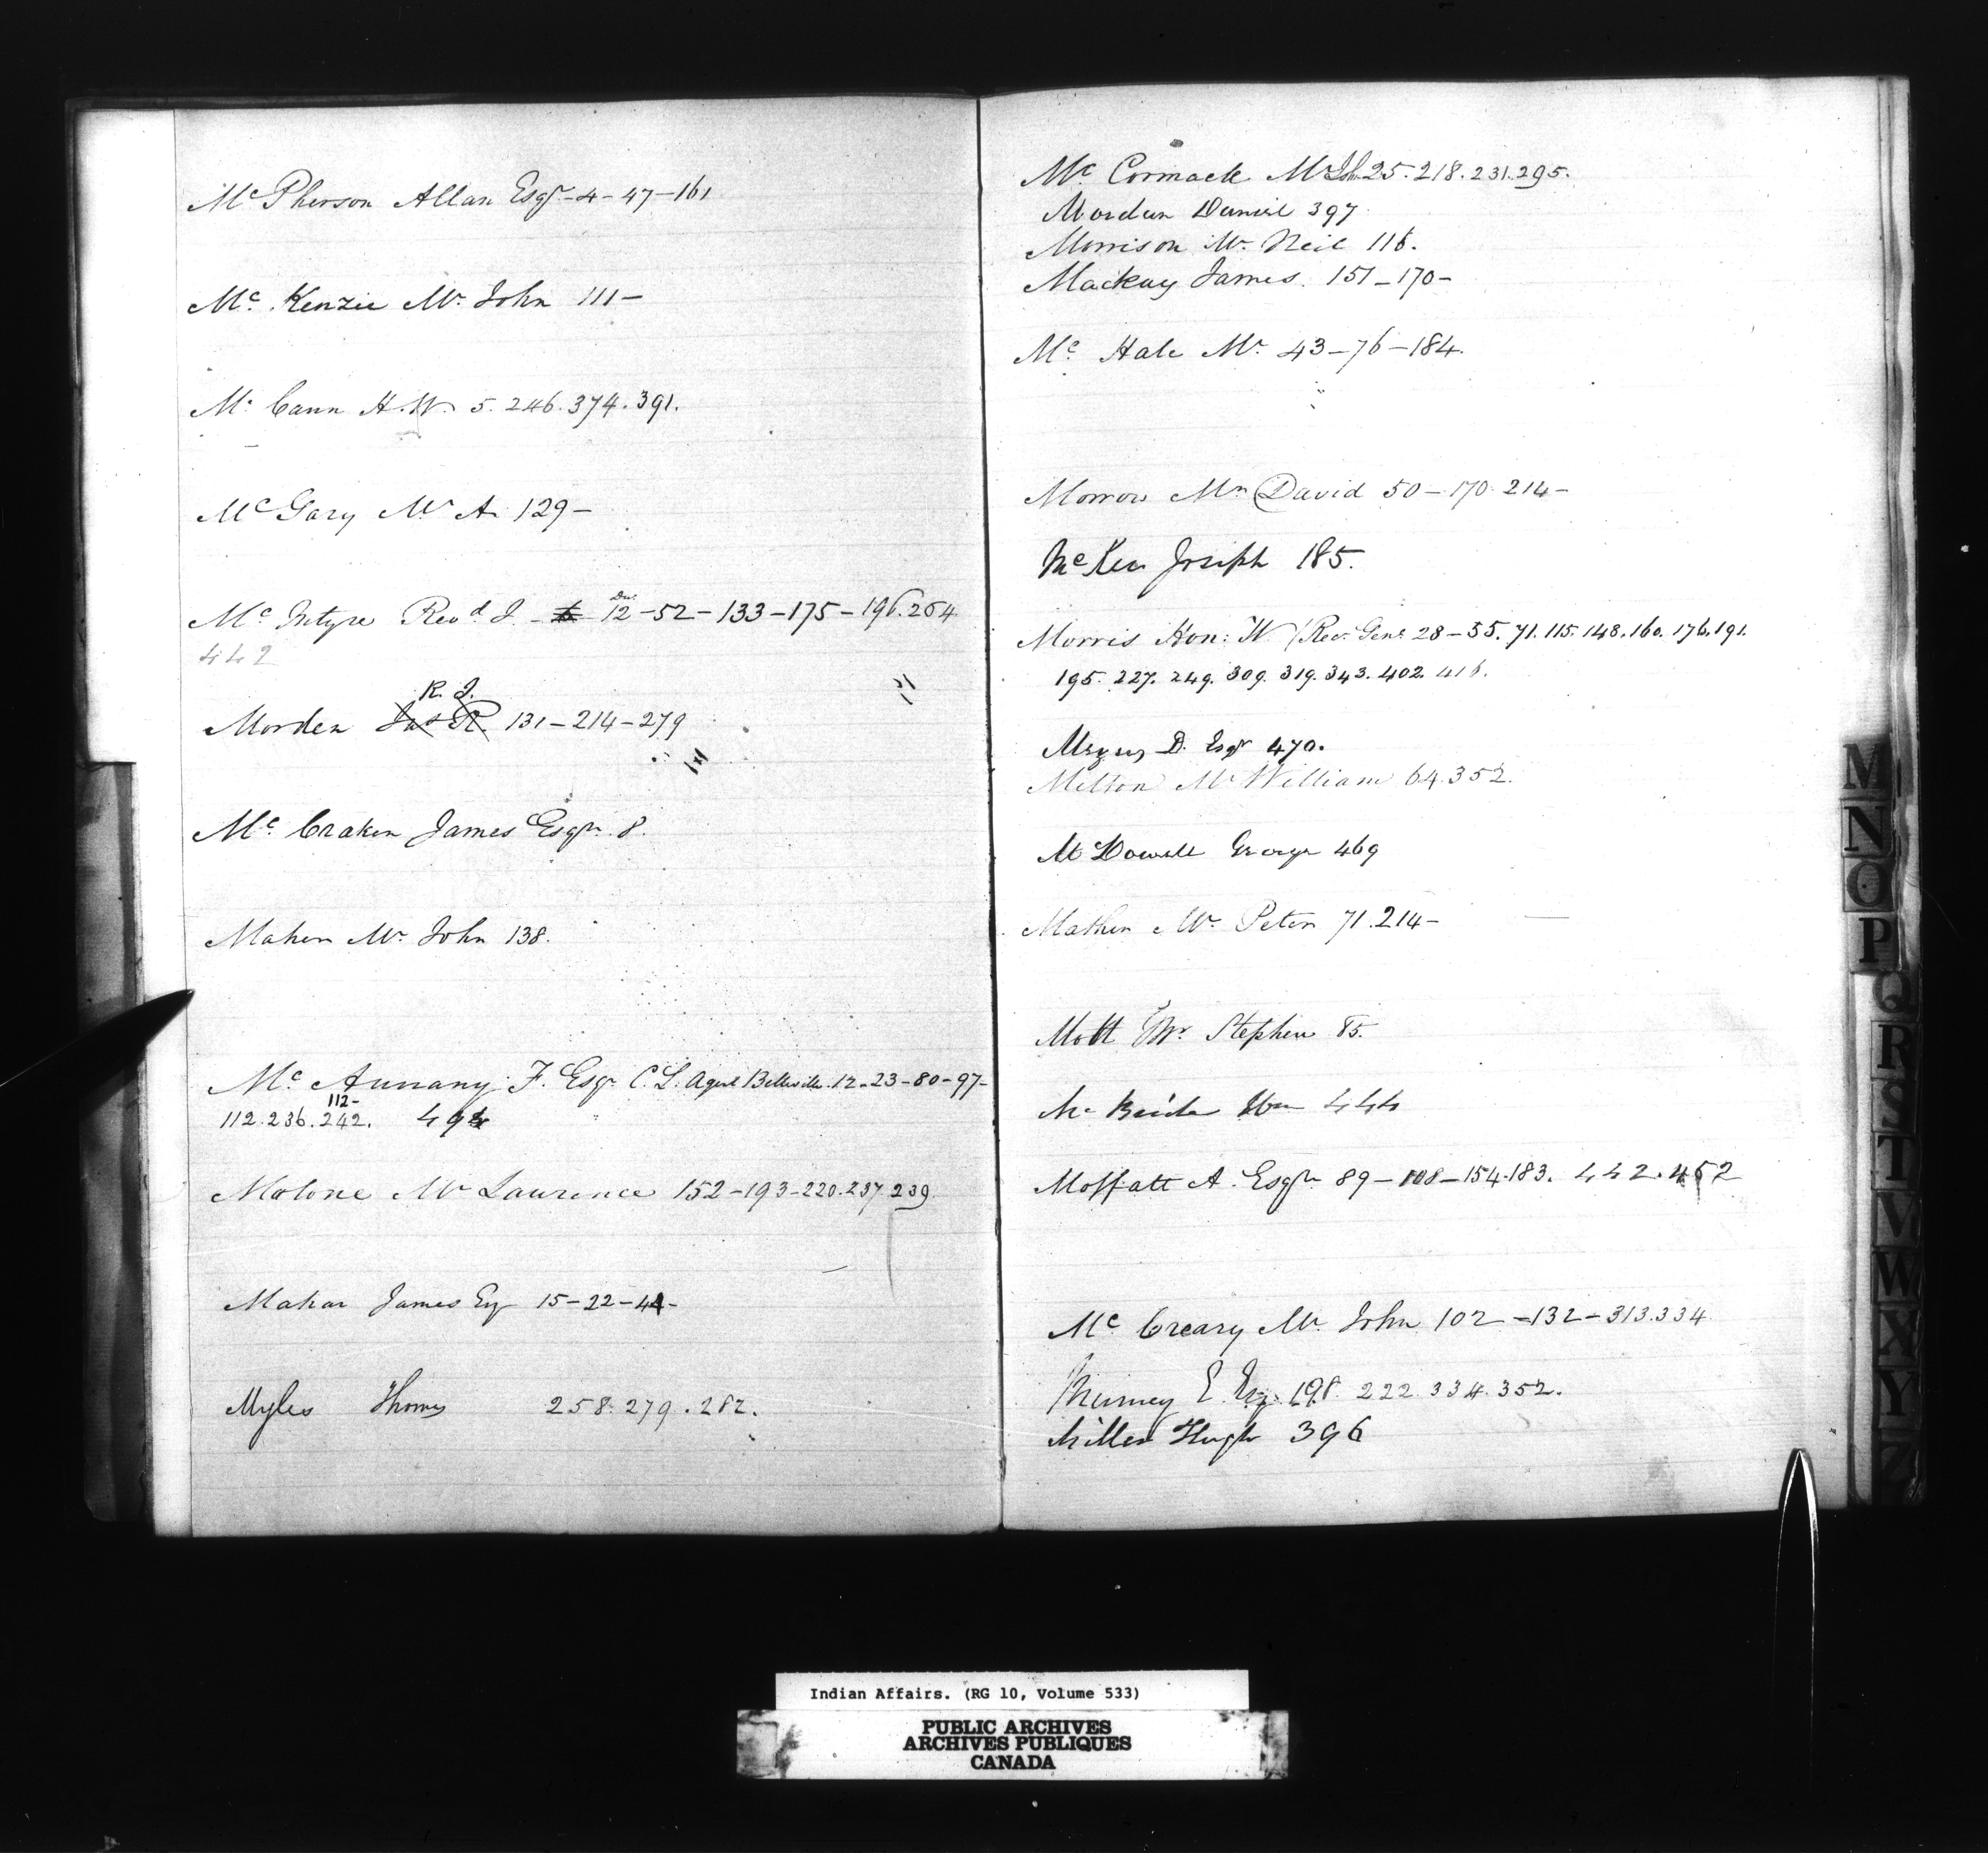 Mc Pherson Allan Esqr - 4 - 47 - 161
Mc Kenzie Mr John 111 -
Mc Cann H. W. 5. 246. 374. 391.
McGary Mr A. 129 -
Mc Intyre Revd J. 12 - 52 - 133 - 175 - 196. 264
442
R. J.
Morden Jas R. 131 - 214 - 279
Mc Craken James Esqr. 8.
Maher Mr John 138.
Mc Annany F. Esqr C. L. Agent Belleville. 12 - 23 - 80 - 97 -
112 -
112. 236. 242. 494
Malone Mr Laurence 152 - 193 - 220. 237 239
Mahar James Esq 15 - 22 - 44 -
Myles Thomas 258. 279. 282.
Mc Cormack Mr Jh 25. 218. 231. 295.
Morden Daniel 397
Morrison Mr Neil 116.
Mackay James. 151 - 170 -
Mc Hale Mr 43 - 76 - 184.
Morrow Mr David 50 - 170. 214 -
McKee Joseph 185.
Morris Hon: W (Recr Genl 28 - 55. 71. 115. 148. 160. 176. 191.
195. 227. 249. 309. 319. 343. 402. 416.
D. Esqr 470.
Melton Mr William 64. 352.
Mc Dowell George 469
Mather Mr Peter 71. 214 -
Mott Mr Stephen 85.
Mc Bride Wm 444
Moffatt A. Esqr 89 - 108 - 154. 183. 442. 452
Mc Creary Mr John 102 - 132 - 313. 334
Murney E. Esq. 198. 222. 334. 352.
Miller Hugh 396
M
N
O
P
Q
R
S
T
V
W
X
Y
Z
Indian Affairs. (RG 10, Volume 533)
PUBLIC ARCHIVES
ARCHIVES PUBLIQUES
CANADA